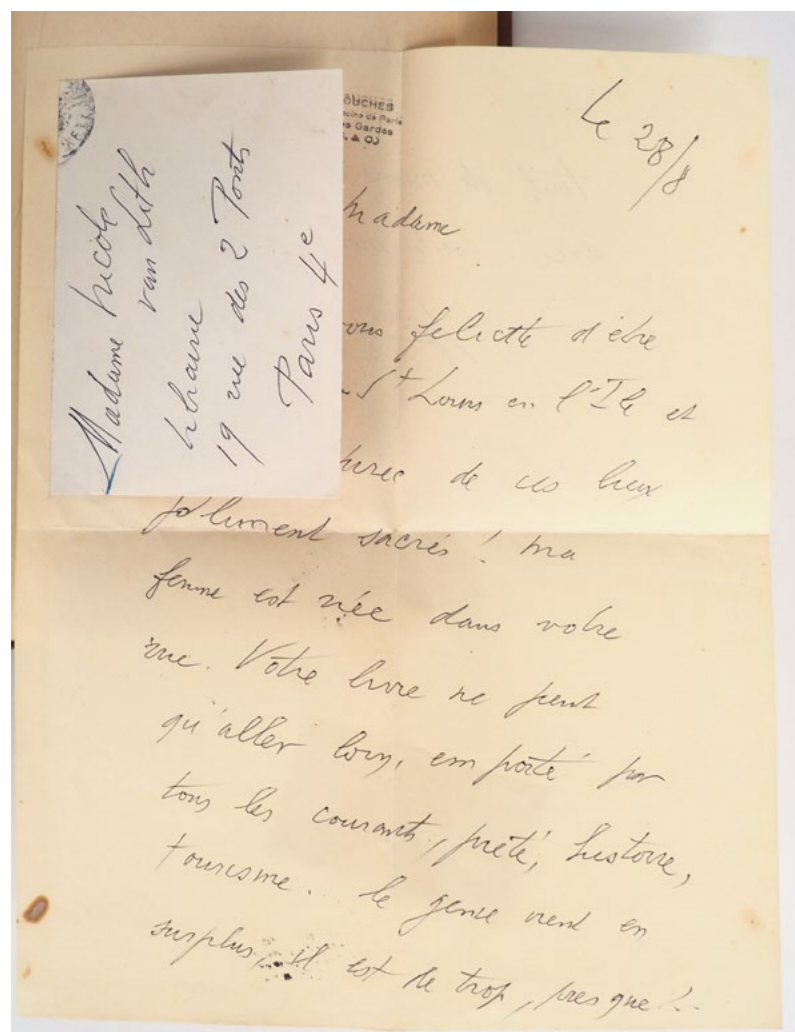 Madame Nicole
van Lith
libraire
19 rue des 2 Ponts
Paris 4e
OUCHES
Gardes
Le 28/8
Madame
ous felicite d'être
St Louis en l'Ile et
de ces lieux
joliment sacrés ! Ma
femme est née dans votre
rue. Votre livre ne peut
qu'aller loin, emporté par
tous les courants, piété, histoire,
tourisme. le génie vient en
surplus, il est de trop, presque !..